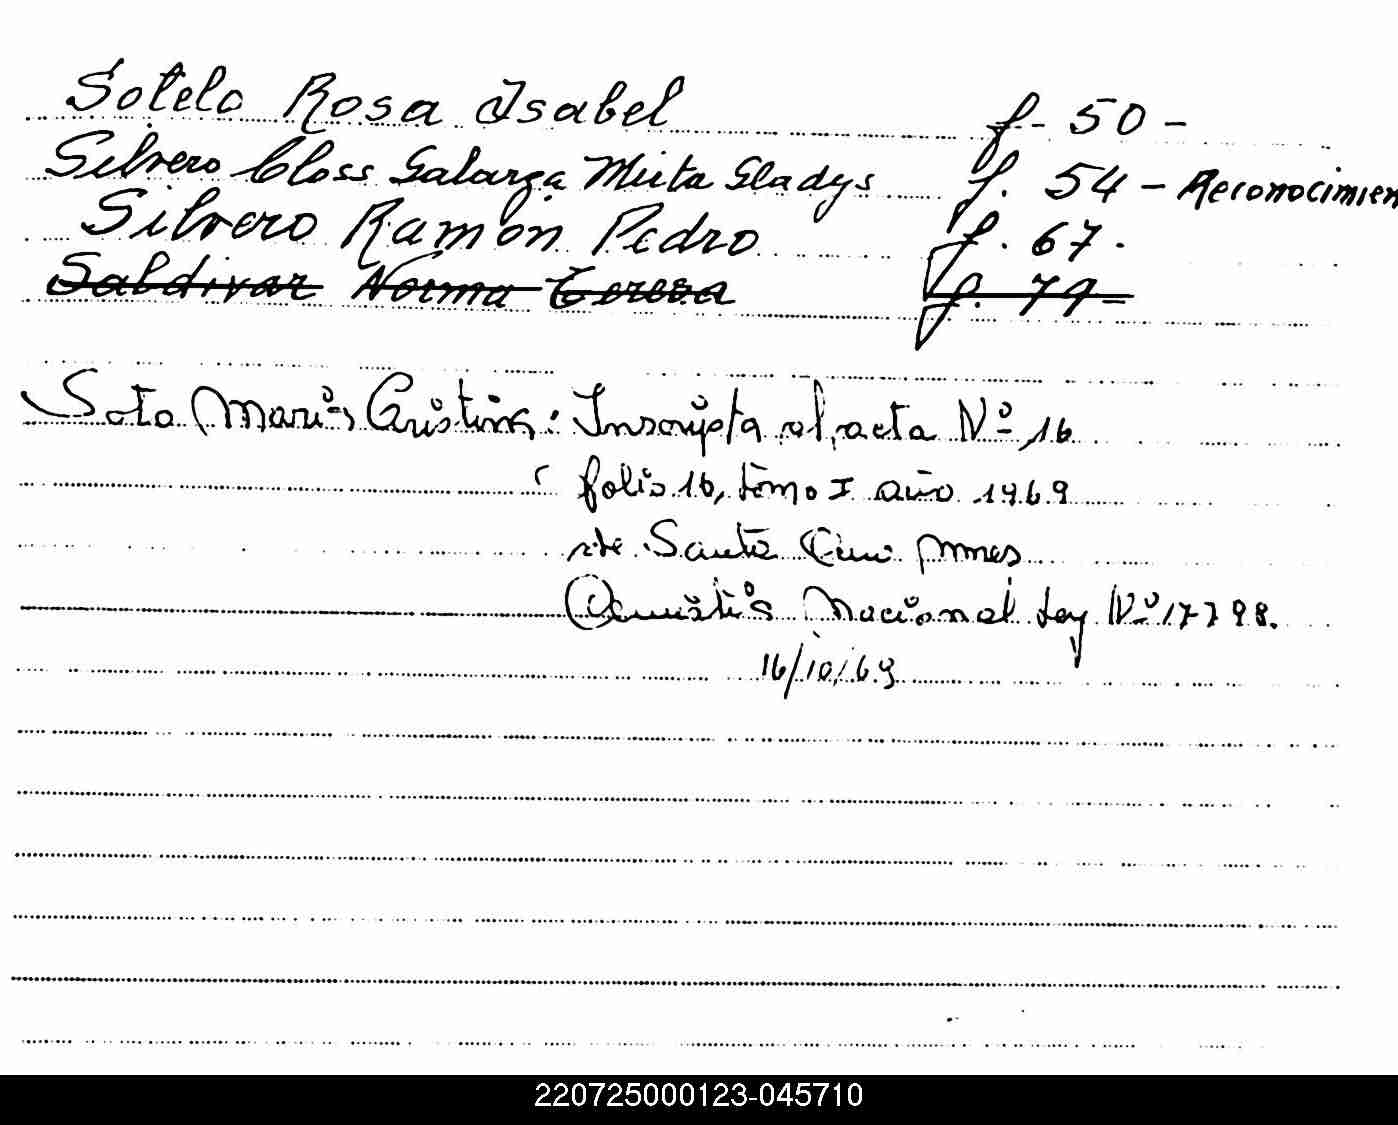 Sotelo Rosa Isabel f- 50 -
Silvero Closs Galarza Mirta Gladys f. 54 - Reconocimien
Silvero Ramón Pedro f. 67.
Saldivar Norma Teresa f. 79-
Soto Maria Cristina: Inscripta al acta Nº 16
folio 16, tomo I año 1969
de Santa Ana Mnes
Amnistia Nacional Ley Nº 17798.
16/10/69
220725000123-045710